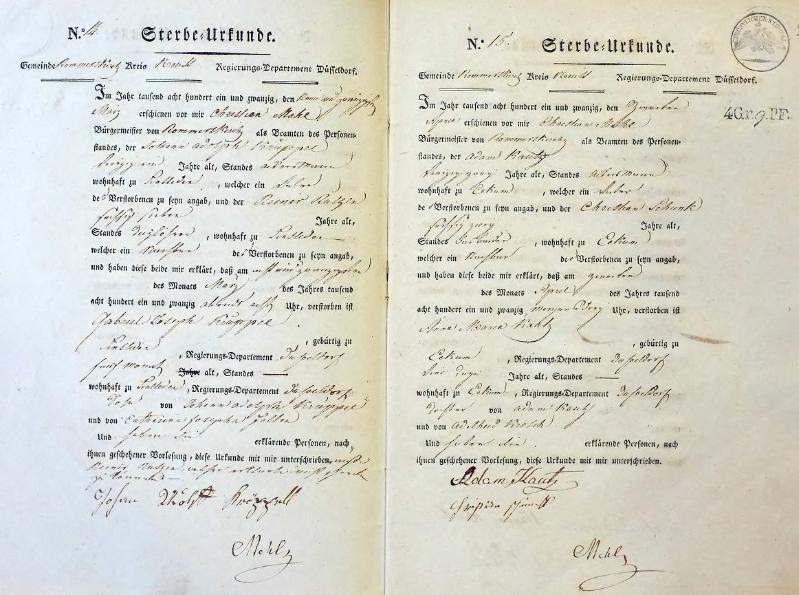 N.º 14
Sterbe-Urkunde.
Gemeinde Rommerskirch Kreis Regierungs-Departement Düsseldorf.
Im Jahr tausend acht hundert ein und zwanzig, den
Merz erschienen vor mir Christian Mehl
Bürgermeister von Rommerskirch als Beamten des Personen-
standes, der Johann Adolph Krüppel
Jahre alt, Standes Ackersmann
wohnhaft zu , welcher ein Vater
des Verstorbenen zu seyn angab, und der Reiner
fünfzig sieben Jahre alt,
Standes Taglöhner , wohnhaft zu
welcher ein Nachbar des Verstorbenen zu seyn angab,
und haben diese beide mir erklärt, daß am acht und zwanzigsten
des Monats Merz des Jahres tausend
acht hundert ein und zwanzig abends acht Uhr, verstorben ist
Gabriel Joseph Krüppel
, gebürtig zu
, Regierungs-Departement Düsseldorf
fünf Monat Jahre alt, Standes —
wohnhaft zu , Regierungs-Departement Düsseldorf
Sohn von Johann Adolph Krüppel
und von Catharina Josepha
Und haben die erklärende Personen, nach
ihnen geschehener Vorlesung, diese Urkunde mit mir unterschrieben,
Johan Adolf
Mehl
N.º 15.
Sterbe-Urkunde.
Gemeinde Rommerskirch Kreis Regierungs-Departement Düsseldorf.
4Gr. 9.PF.
Im Jahr tausend acht hundert ein und zwanzig, den Zweyten
April erschienen vor mir Christian Mehl
Bürgermeister von Rommerskirch als Beamten des Personen-
standes, der Adam Kautz
Jahre alt, Standes Ackersmann
wohnhaft zu Eckum , welcher ein Vater
der Verstorbenen zu seyn angab, und der Christian Schunk
fünfzig zwey Jahre alt,
Standes , wohnhaft zu Eckum
welcher ein Nachbar der Verstorbenen zu seyn angab,
und haben diese beide mir erklärt, daß am zweyten
des Monats April des Jahres tausend
acht hundert ein und zwanzig morgens Uhr, verstorben ist
Anna Maria Kautz
, gebürtig zu
Eckum , Regierungs-Departement Düsseldorf
Jahre alt, Standes —
wohnhaft zu Eckum , Regierungs-Departement Düsseldorf
Tochter von Adam Kautz
und von Adelheid
Und haben die erklärende Personen, nach
ihnen geschehener Vorlesung, diese Urkunde mit mir unterschrieben.
Adam Kautz
Mehl